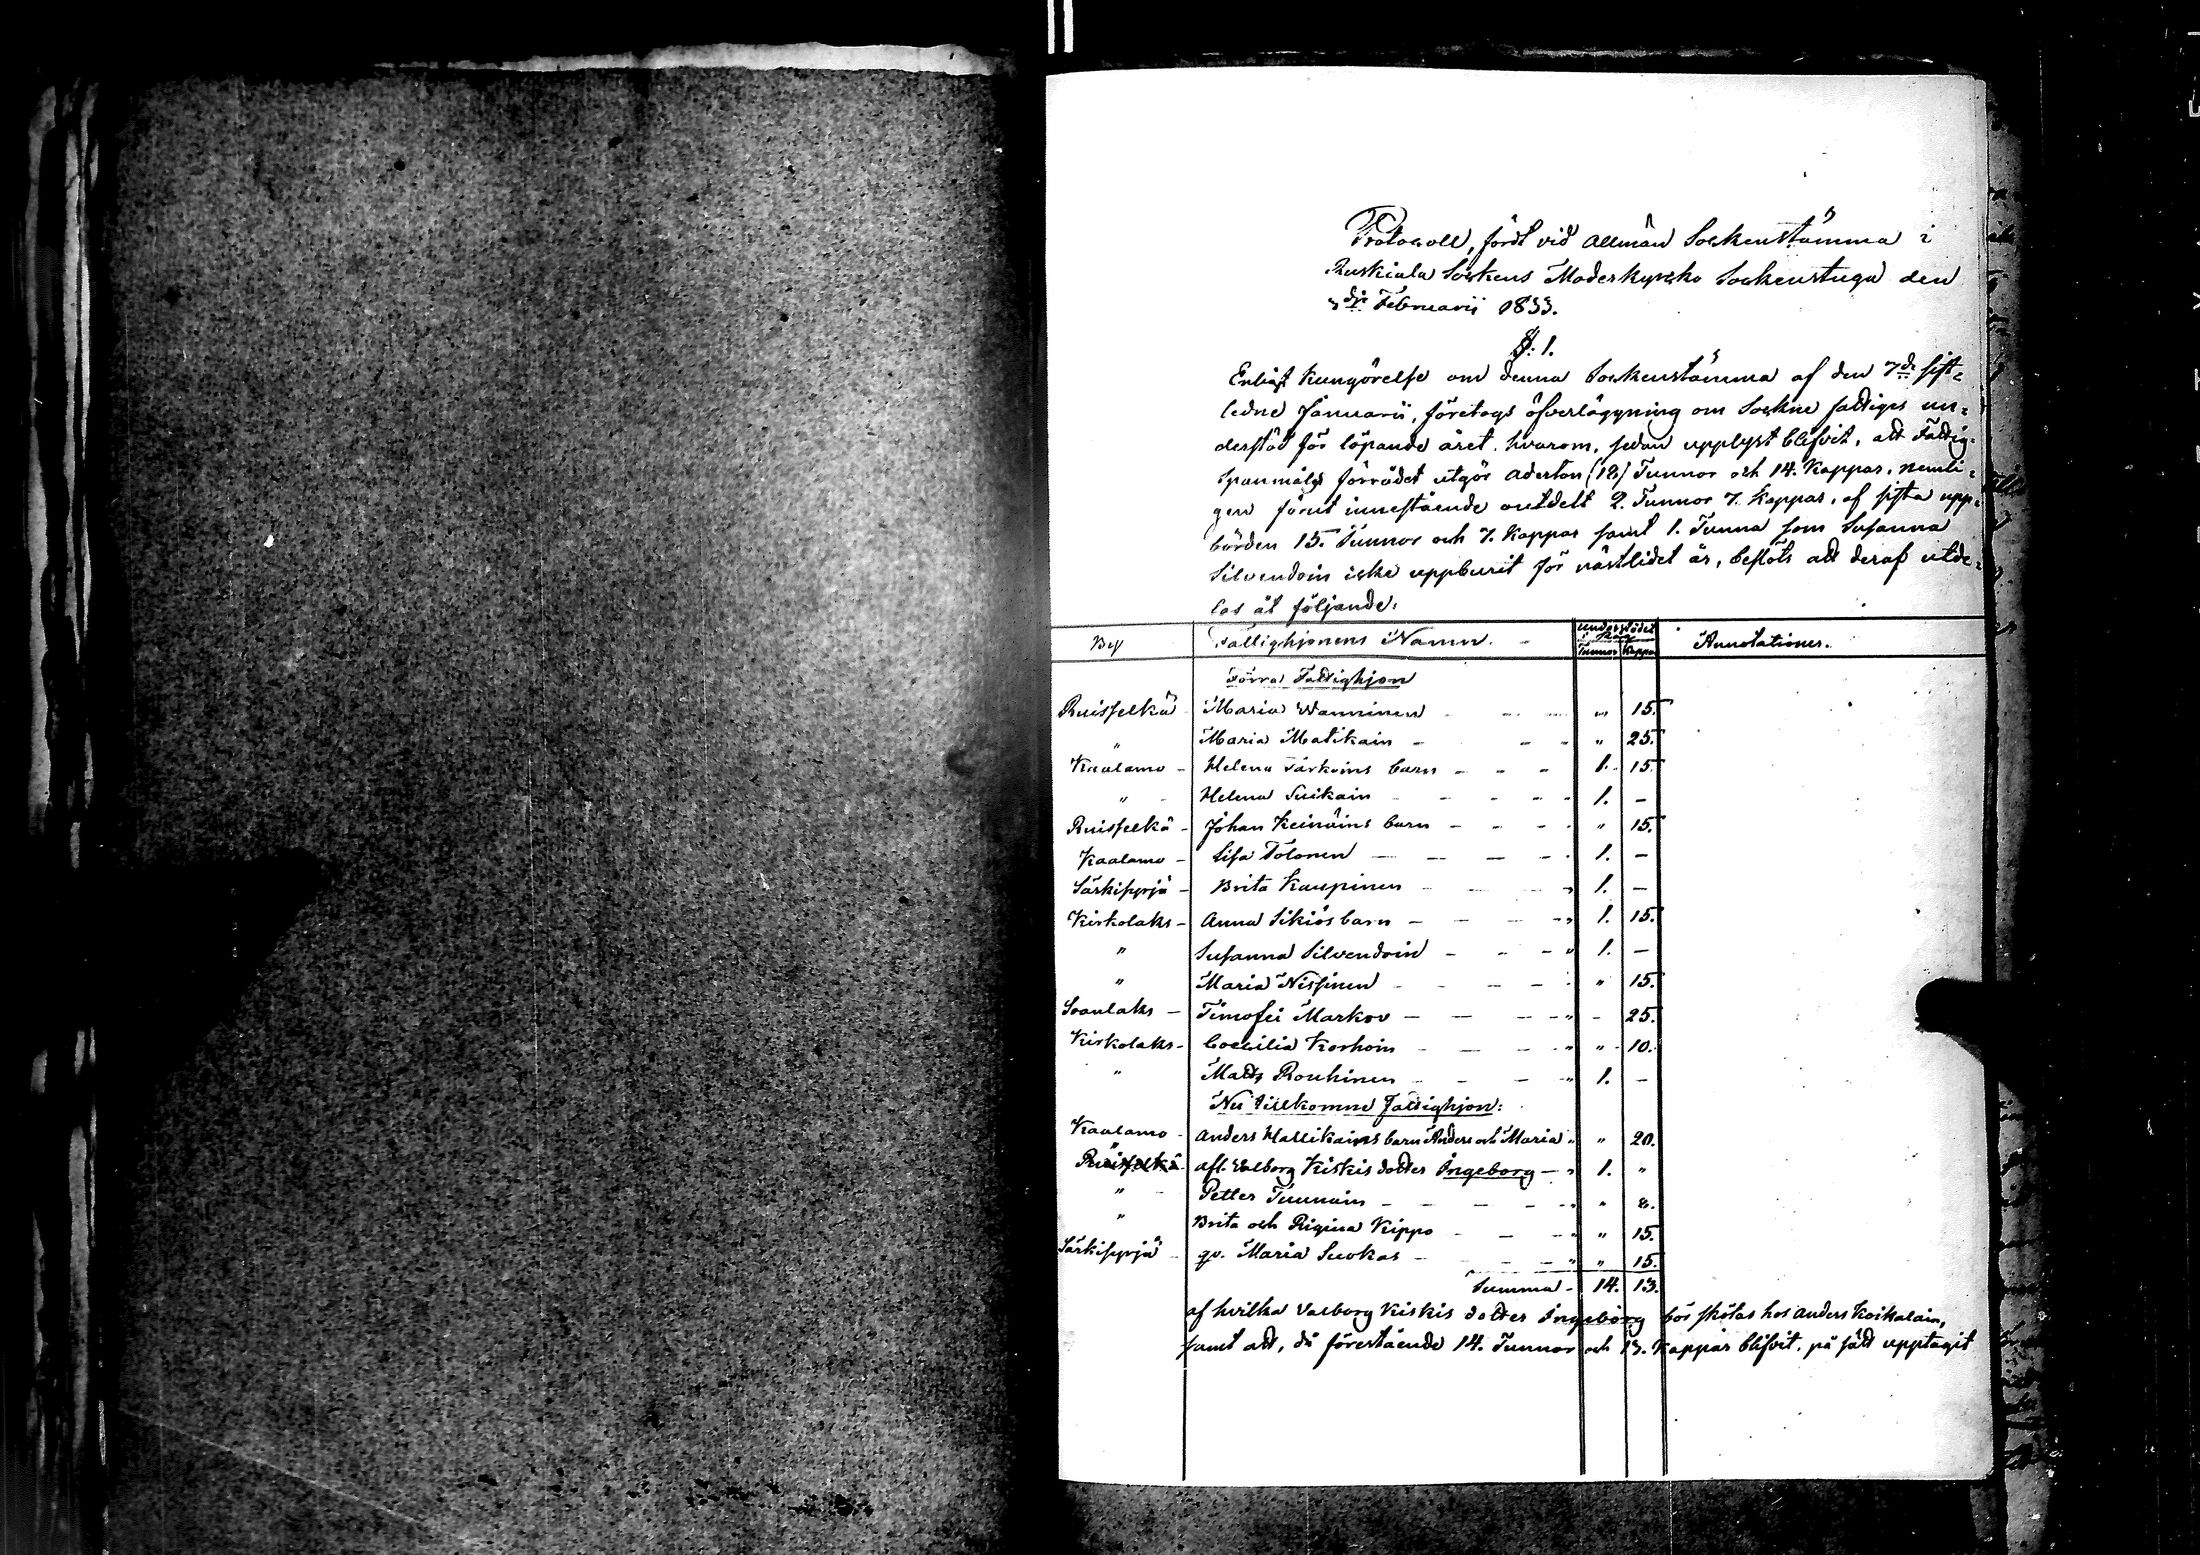 Protocoll, fördt vid allmän Sockenstämma i
Ruskiala Sockens Moderkyrcko Sockenstuga den
3die Februarii 1833.
§: 1.
Enligt Kungörelse om denna Sockenstämma af den 7de sist=
ledne Januarii, företogs öfverläggning om Sockne fattiges un=
derstöd för löpande året, hvarom, sedan upplyst blifvit, att Fattig=
Spanmåls förrådet utgör aderton (18) Tunnor och 14. Kappar, nemli=
gen förut innestående outdelt 2. Tunnor 7. Kappar, af sista upp=
börden 15. Tunnor och 7. Kappar samt 1. Tunna som Susanna
Silvendoin icke uppburit för nästlidet år, beslöts att deraf utde=
las åt följande:
By Fattighjonens Namn. Understödet i Råg Tunnor Kappar Annotationer.
Förra Fattighjon
Ruisselkä Maria Wanninen - - - " 15.
" Maria Matikain - - - " 25.
Kaalamo - Helena Pärkoins barn - - - 1. 15.
" - Helena Suikain - - - 1. -
Ruisselkä - Johan Keinöins barn - - - " 15.
Kaalamo - Lisa Tolonen - - - 1. -
Särkisyrjä - Brita Kaupinen - - - 1. -
Kirkolaks - Anna Sikiös barn - - - 1. 15.
" Susanna Silvendoin - - - " 1. -
" Maria Nissinen - - - " 15.
Soanlaks - Timofei Markov - - - " - 25.
Kirkolaks - Coecilia Korhoin - - - " " 10.
" Matts Rouhinen - - - " 1. -
Nu tillkomne Fattighjon:
Kaalamo - Anders Hallikains barn Anders och Maria " " 20.
" Ruisselkä afl. Valborg Kiskis dotter Ingeborg - " 1. "
" - Petter Tunnain - - - " " 8.
" Brita och Rigina Kippo - - - " " 15.
Särkisyrjä - gr. Maria Suokas - - - " " 15.
Summa - 14. 13.
af hvilka Valborg Kiskis dotter Ingeborg bör skötas hos Anders Koikalain,
samt att, då förestående 14. Tunnor och 13. Kappar blifvit, på sätt upptagit